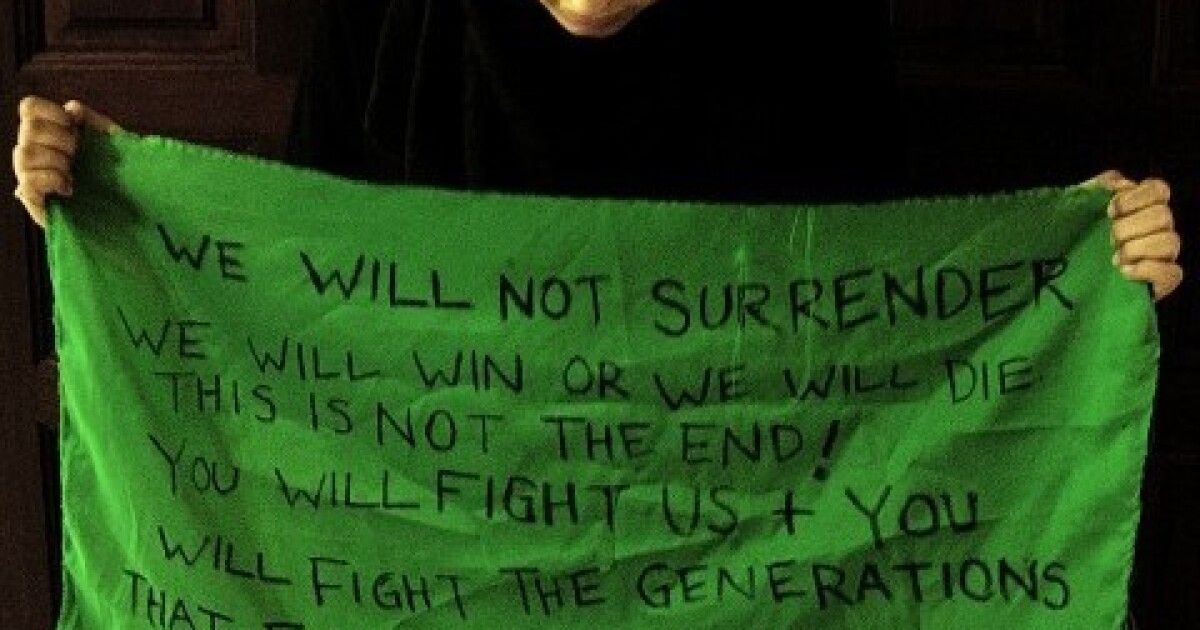 WE WILL NOT SURRENDER
WE WILL WIN OR WE WILL DIE.
THIS IS NOT THE END!
YOU WILL FIGHT US + YOU
WILL FIGHT THE GENERATIONS
THAT